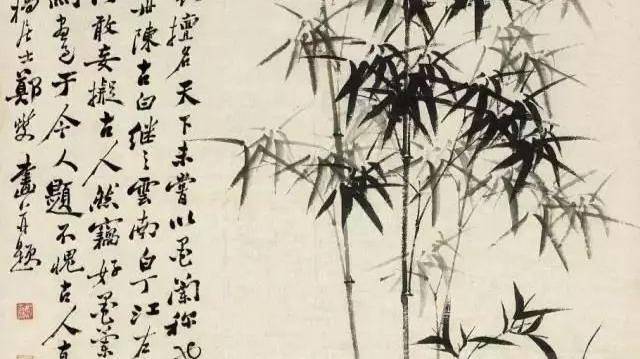 擅名天下未嘗以墨蘭称也
陳古白继之雲南白丁江左
敢妄擬古人然竊好墨蘭
畫于今人題不愧古人
居士鄭燮畫并題